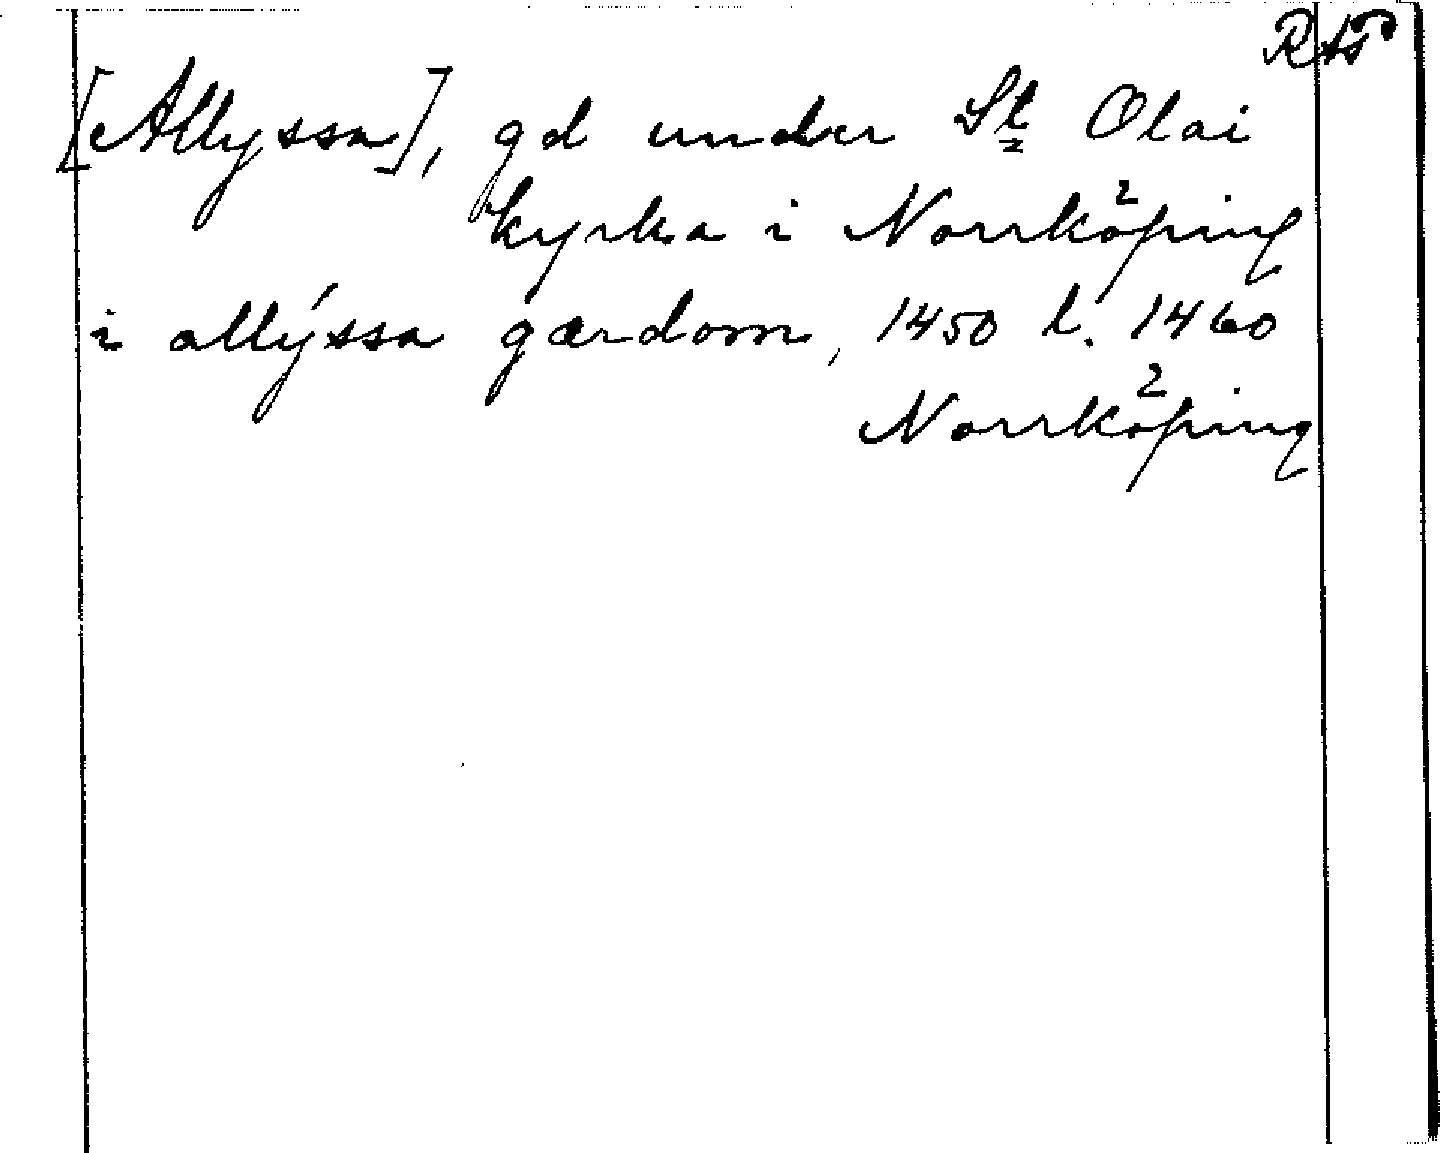 RAp
[Allyssa], gd under St Olai
kyrka i Norrköping
i allýssa gærdom, 1450 l. 1460
Norrköping